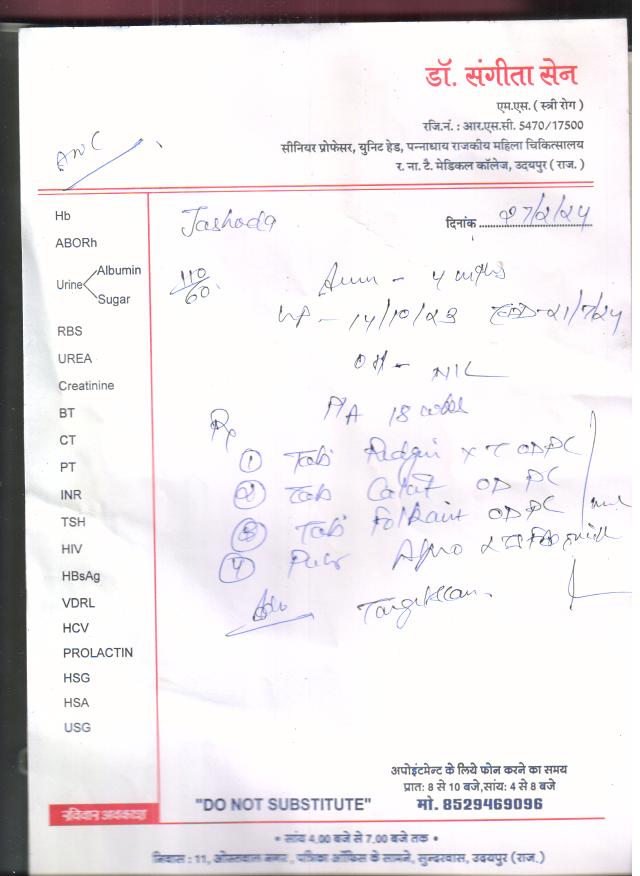 डॉ. संगीता सेन
एम.एस. ( स्त्री रोग )
रजि.नं. : आर.एस.सी. 5470/17500
सीनियर प्रोफेसर, युनिट हेड, पन्नाधाय राजकीय महिला चिकित्सालय
र. ना. टै. मेडिकल कॉलेज, उदयपुर ( राज. )
ANC
Hb
Jashoda
दिनांक 27/2/24
ABORh
Urine Albumin
Sugar
110/60
Amm - 4 mths
LMP - 14/10/23 EDD-21/7/24
RBS
UREA
OH - NIL
Creatinine
BT
P/A 18 weeks
Rx
CT
① Tab OD PC
PT
② Tab OD PC
INR
③ Tab OD PC
TSH
④
HIV
HBsAg
Adv
VDRL
HCV
PROLACTIN
HSG
HSA
USG
अपोइंटमेन्ट के लिये फोन करने का समय
प्रात: 8 से 10 बजे,सांय: 4 से 8 बजे
रविवार अवकाश
"DO NOT SUBSTITUTE"
मो. 8529469096
• सांय 4.00 बजे से 7.00 बजे तक •
निवास : 11, ओस्तवाल नगर , पत्रिका ऑफिस के सामने, सुन्दरवास, उदयपुर (राज.)